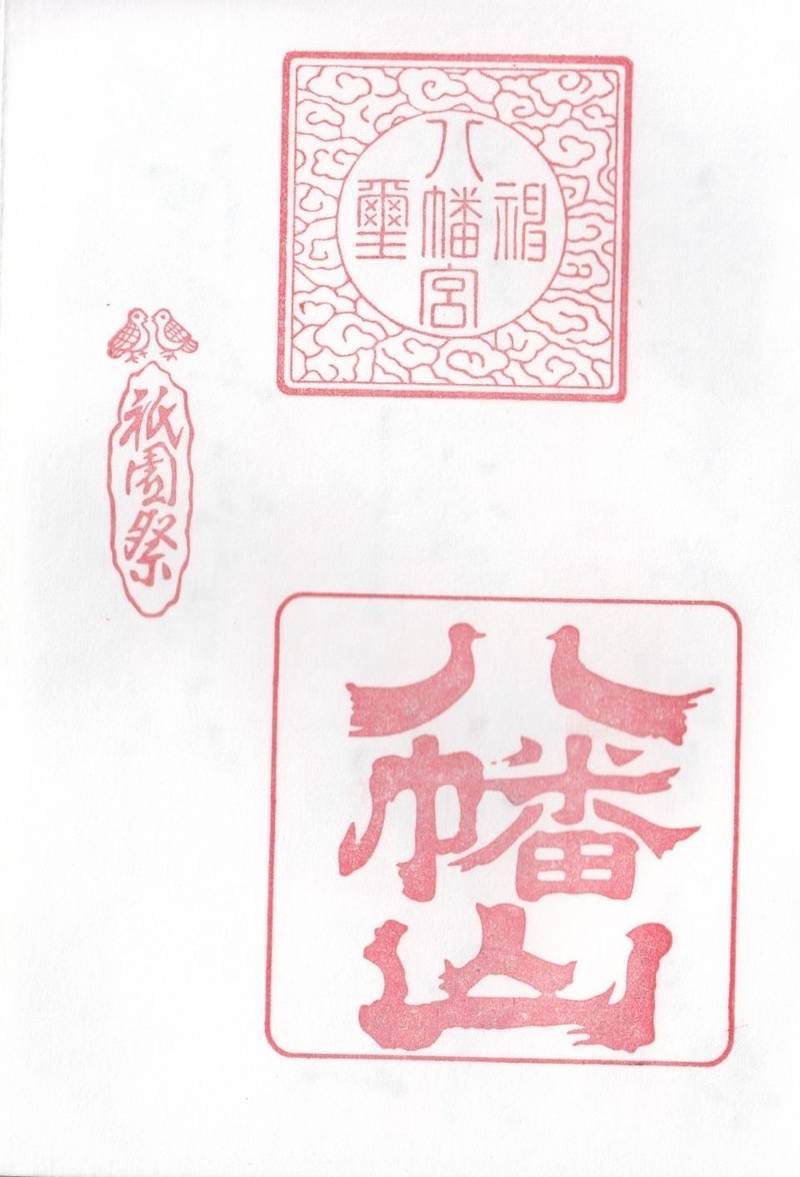 八幡宮
神璽
八幡山
祇園祭